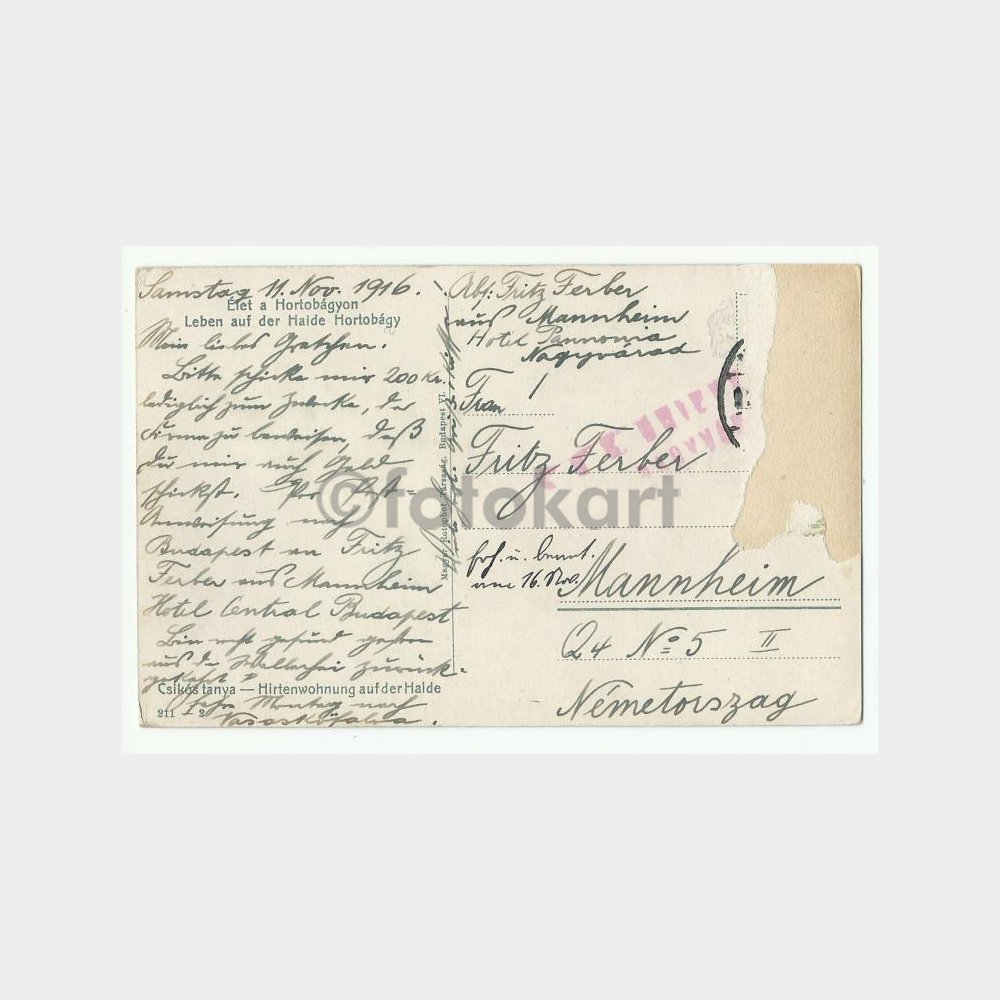 Samstag 11. Nov. 1916.
Élet a Hortobágyon
Leben auf der Haide Hortobágy
Mein liebes Gretchen.
Bitte schicke mir 200 Kr.
lediglich zum Zwecke, der
Firma zu beweisen, daß
Du mir auch Geld
schickst. Per Post=
Anweisung nach
Budapest an Fritz
Ferber aus Mannheim
Hotel Central Budapest
Bin recht gesund gestern
aus der Wallachei zurück-
gekehrt
Csikós tanya — Hirtenwohnung auf der Haide
fahre Montag nach
211 – 2
Vasaskőfalva.
Magyar Rotophot Társaság, Budapest VI.
Abs: Fritz Ferber
aus Mannheim
Hotel Pannonia
Nagyvárad
Frau
Fritz Ferber
erh. u. beant.
am 16. Nov.
Mannheim
Q4 No 5 II
Németország
©fotokart